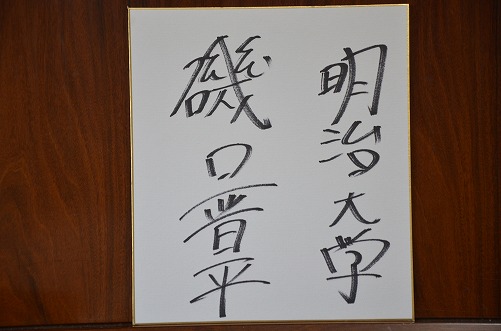 明治大学
磯口晋平